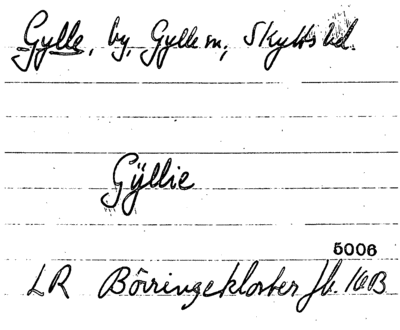 Gylle, by, Gylle sn, Skytts hd.
Gÿllie
5006
LR Börringekloster Jb. 16B